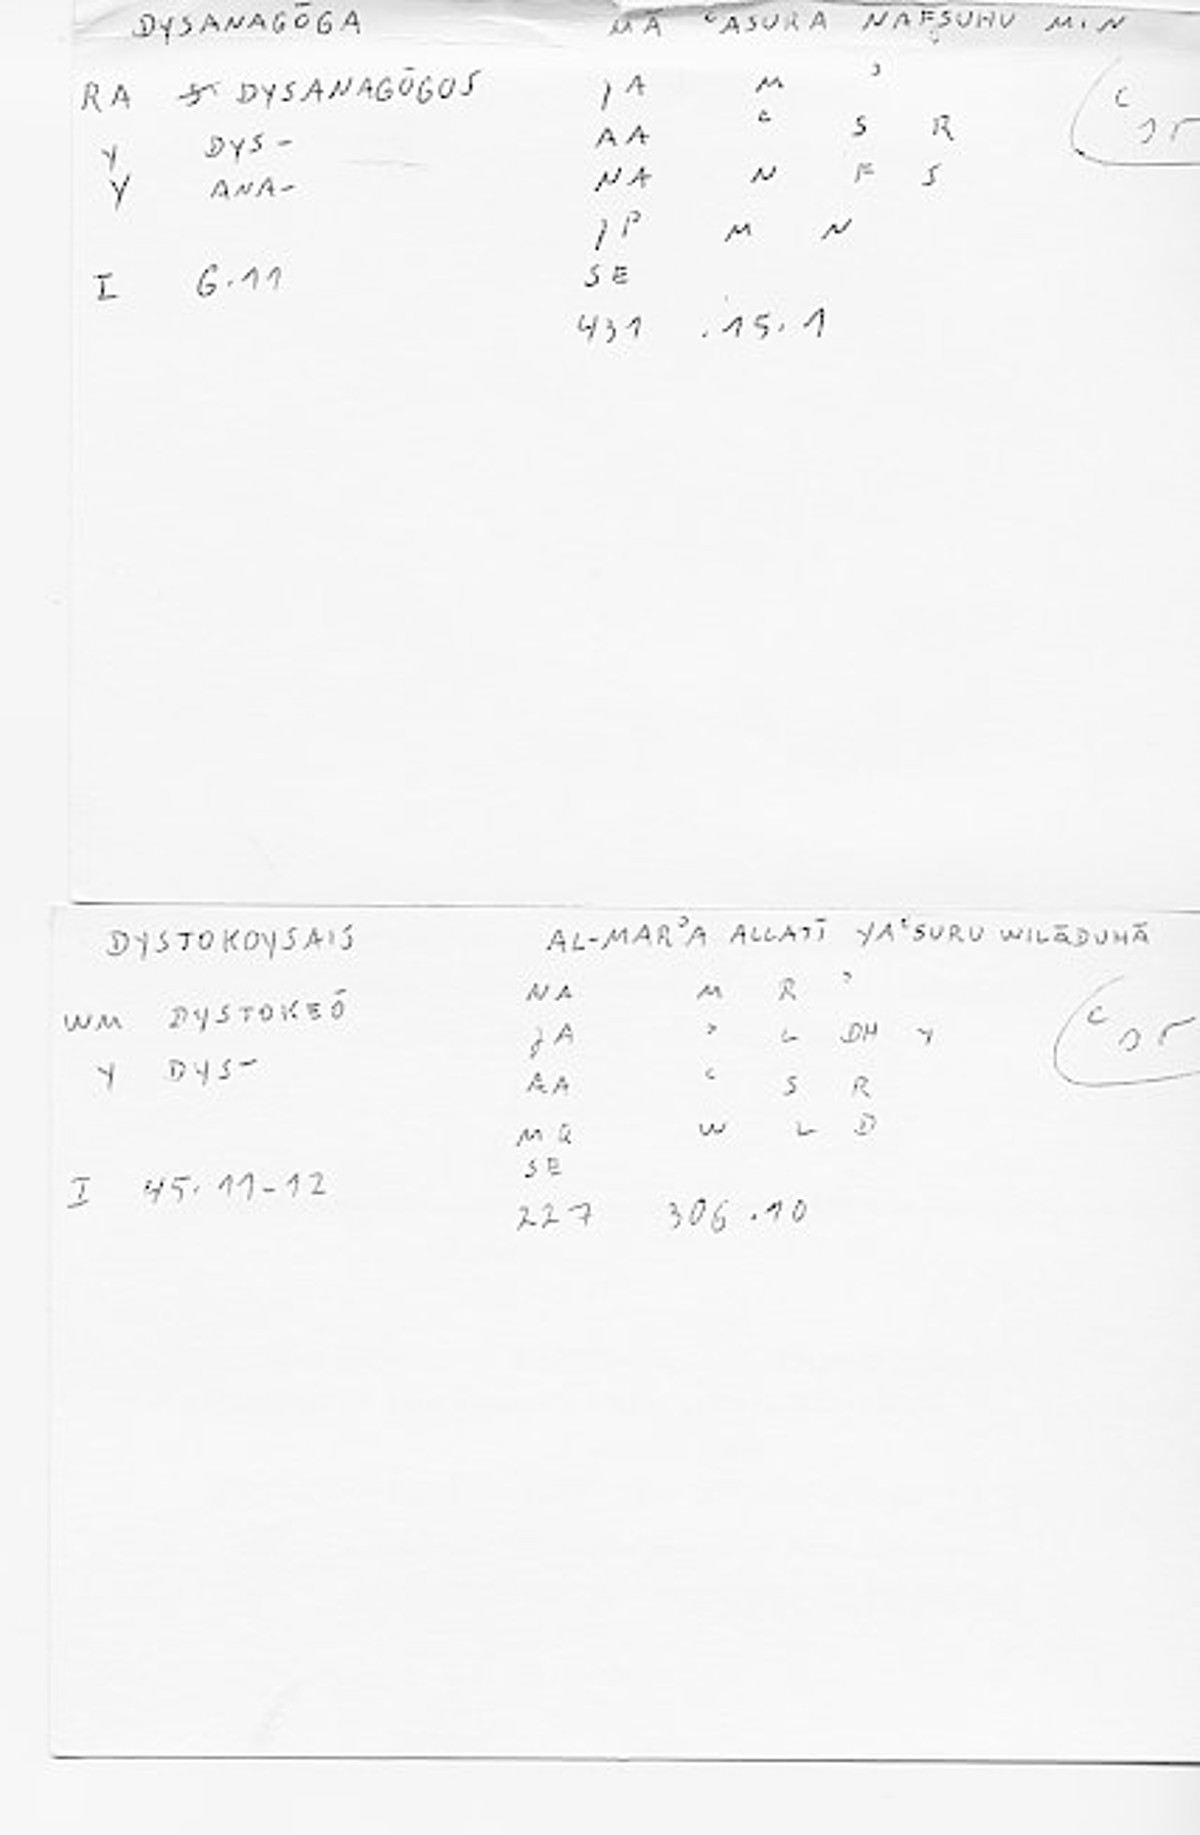 DYSANAGŌGA MĀ ʿASURA NAFSUHU MIN
RA DYSANAGŌGOS JA M ʾ
Y DYS- AA ʿ S R
Y ANA- NA N F S
JP M N
I 6.11 SE
431 .15.1
DYSTOKOYSAIS AL-MARʾA ALLATĪ YAʿSURU WILĀDUHĀ
NA M R ʾ
WM DYSTOKEŌ JA ʾ L DH Y
Y DYS- AA ʿ S R
MQ W L D
SE
I 45.11-12 227 306.10